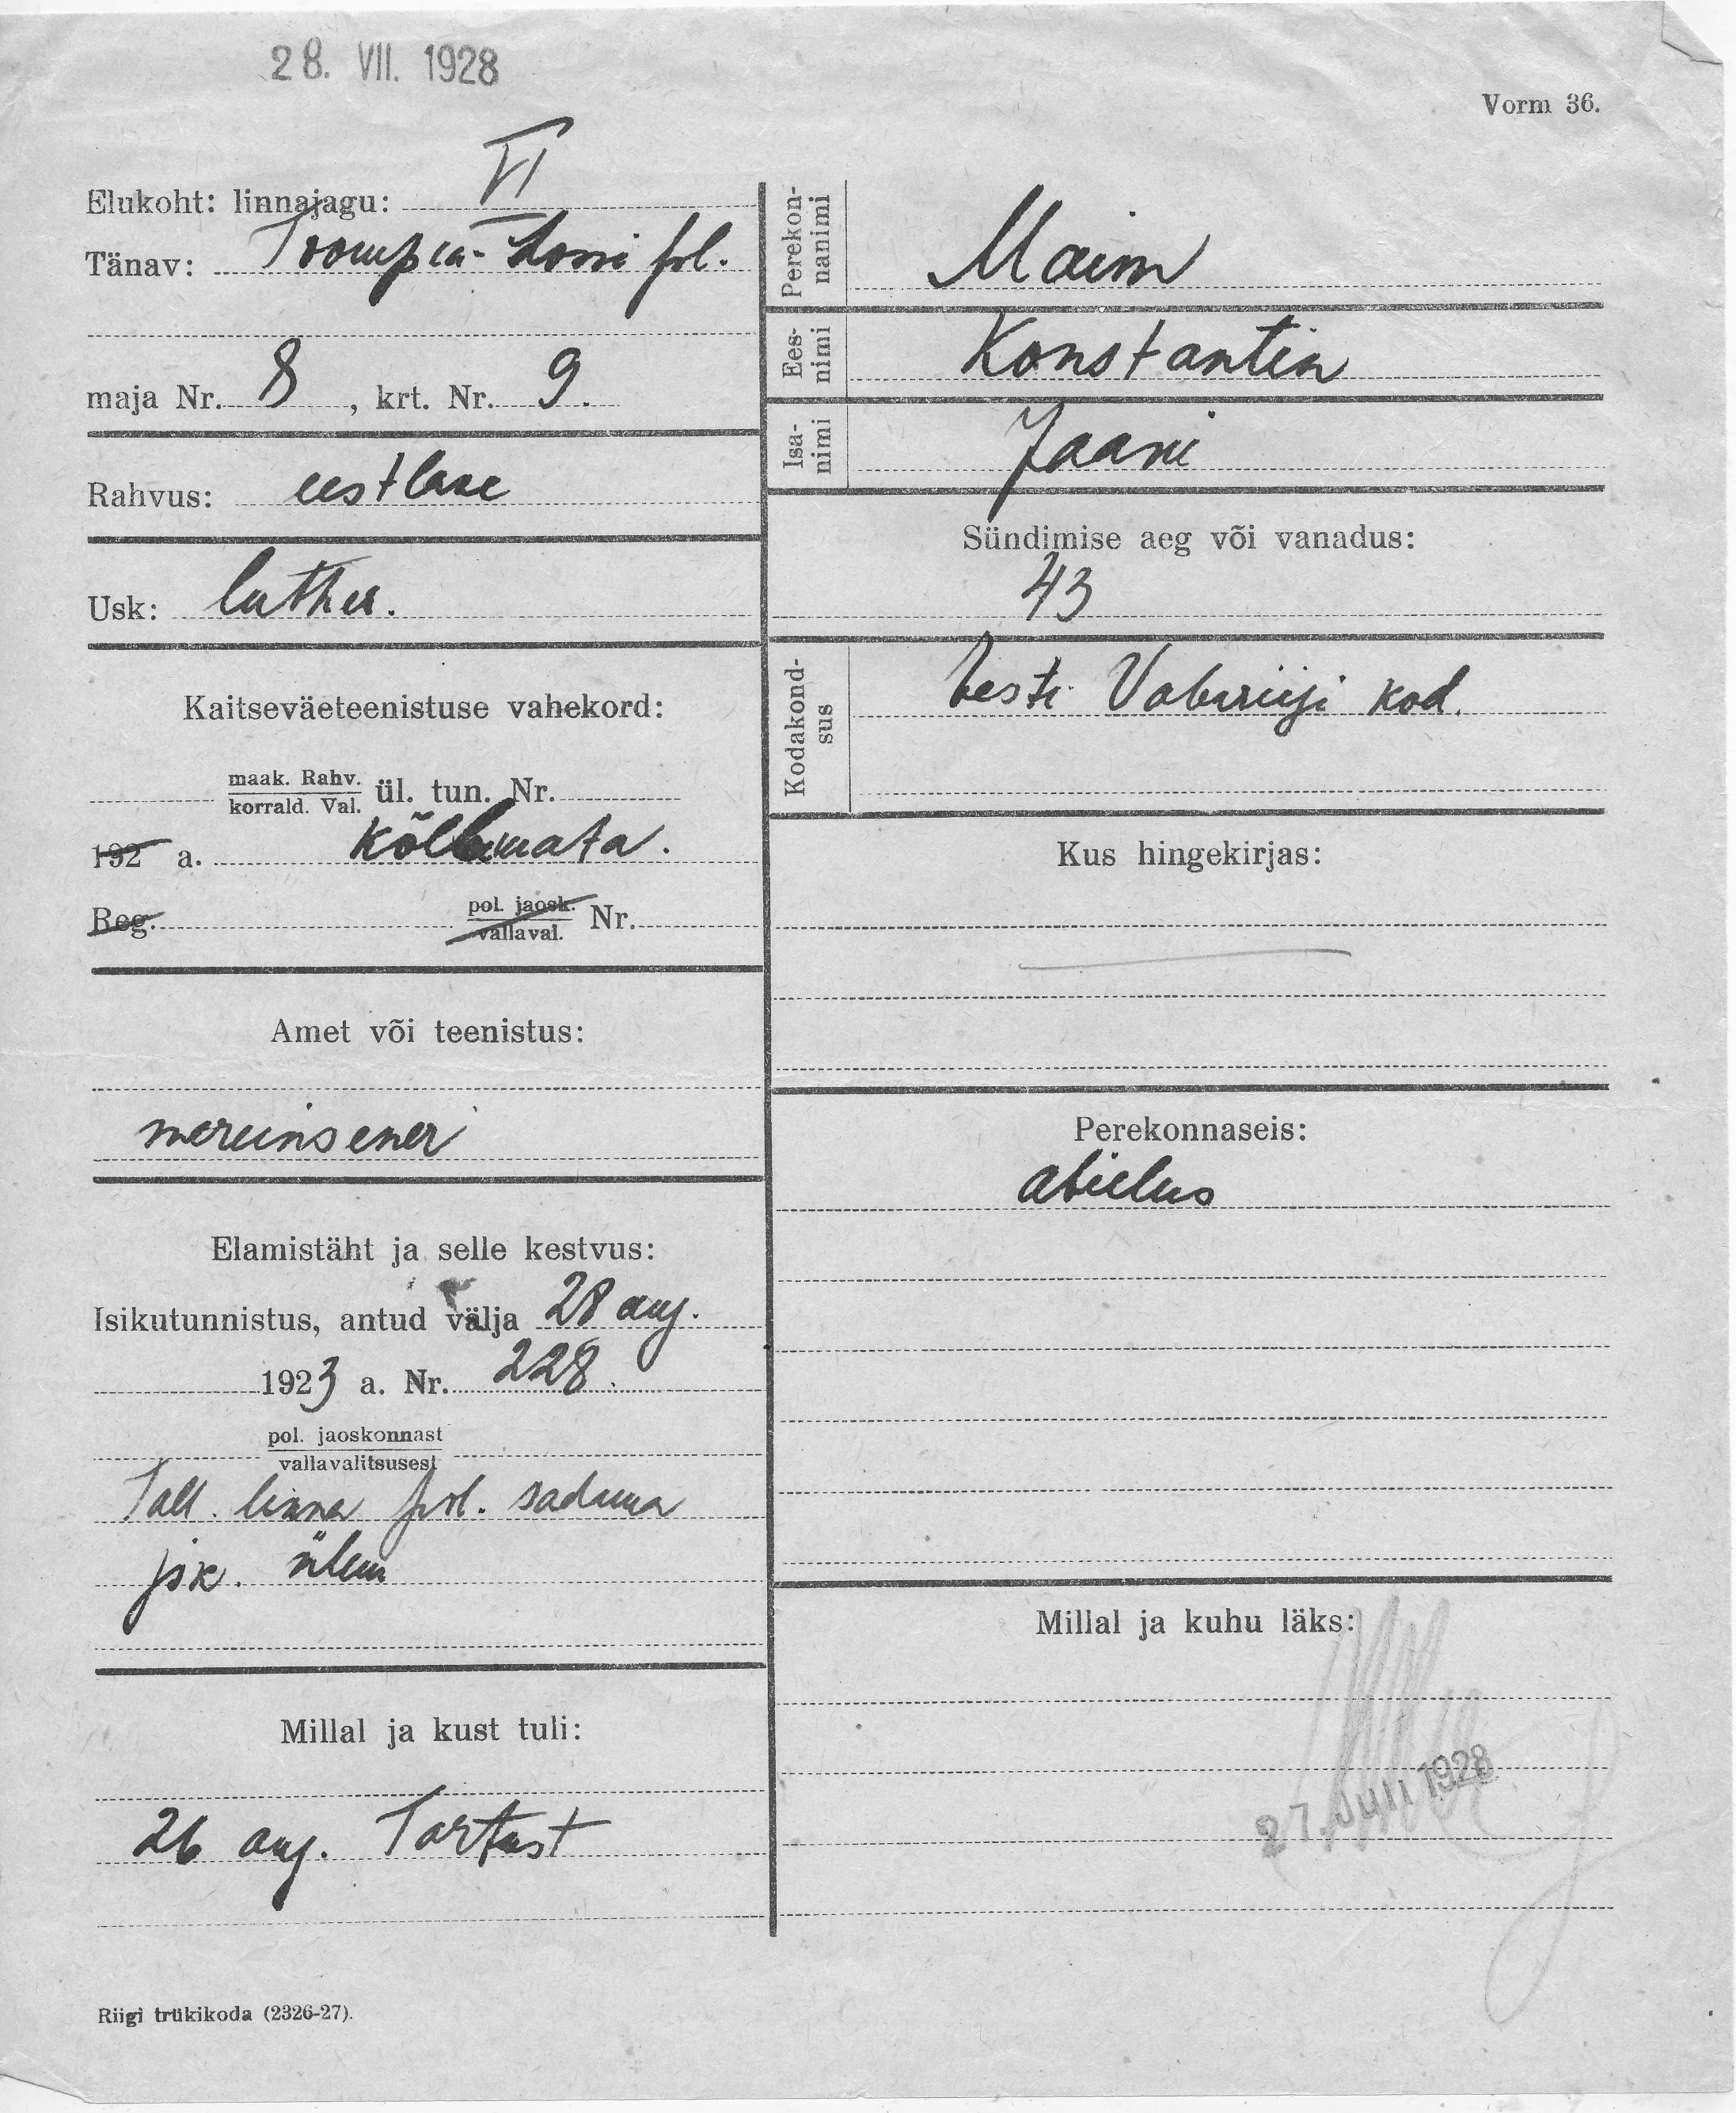 28. VII. 1928
Vorm 36.
Elukoht: linnajagu: VI
Tänav: Toompea-Lossi pl.
maja Nr. 8, krt. Nr. 9.
Rahvus: eestlane
Usk: luther.
Kaitseväeteenistuse vahekord:
maak. Rahv.
korrald. Val. ül. tun. Nr.
192 a. kõlbmata.
Reg. pol. jaosk. Nr.
vallaval.
Amet või teenistus:
mereinsener
Elamistäht ja selle kestvus:
Isikutunnistus, antud välja 28 aug.
1923 a. Nr. 228
pol. jaoskonnast
vallavalitsusest
Tall. linna pol. sadama
jsk. ülem
Millal ja kust tuli:
26 aug. Tartust
Riigi trükikoda (2326-27).
Perekon-
nanimi
Maim
Ees-
nimi
Konstantin
Isa-
nimi
Jaani
Sündimise aeg või vanadus:
43
Kodakond-
sus
Eesti Vabariigi kod.
Kus hingekirjas:
Perekonnaseis:
abielus
Millal ja kuhu läks:
27. Juli 1928